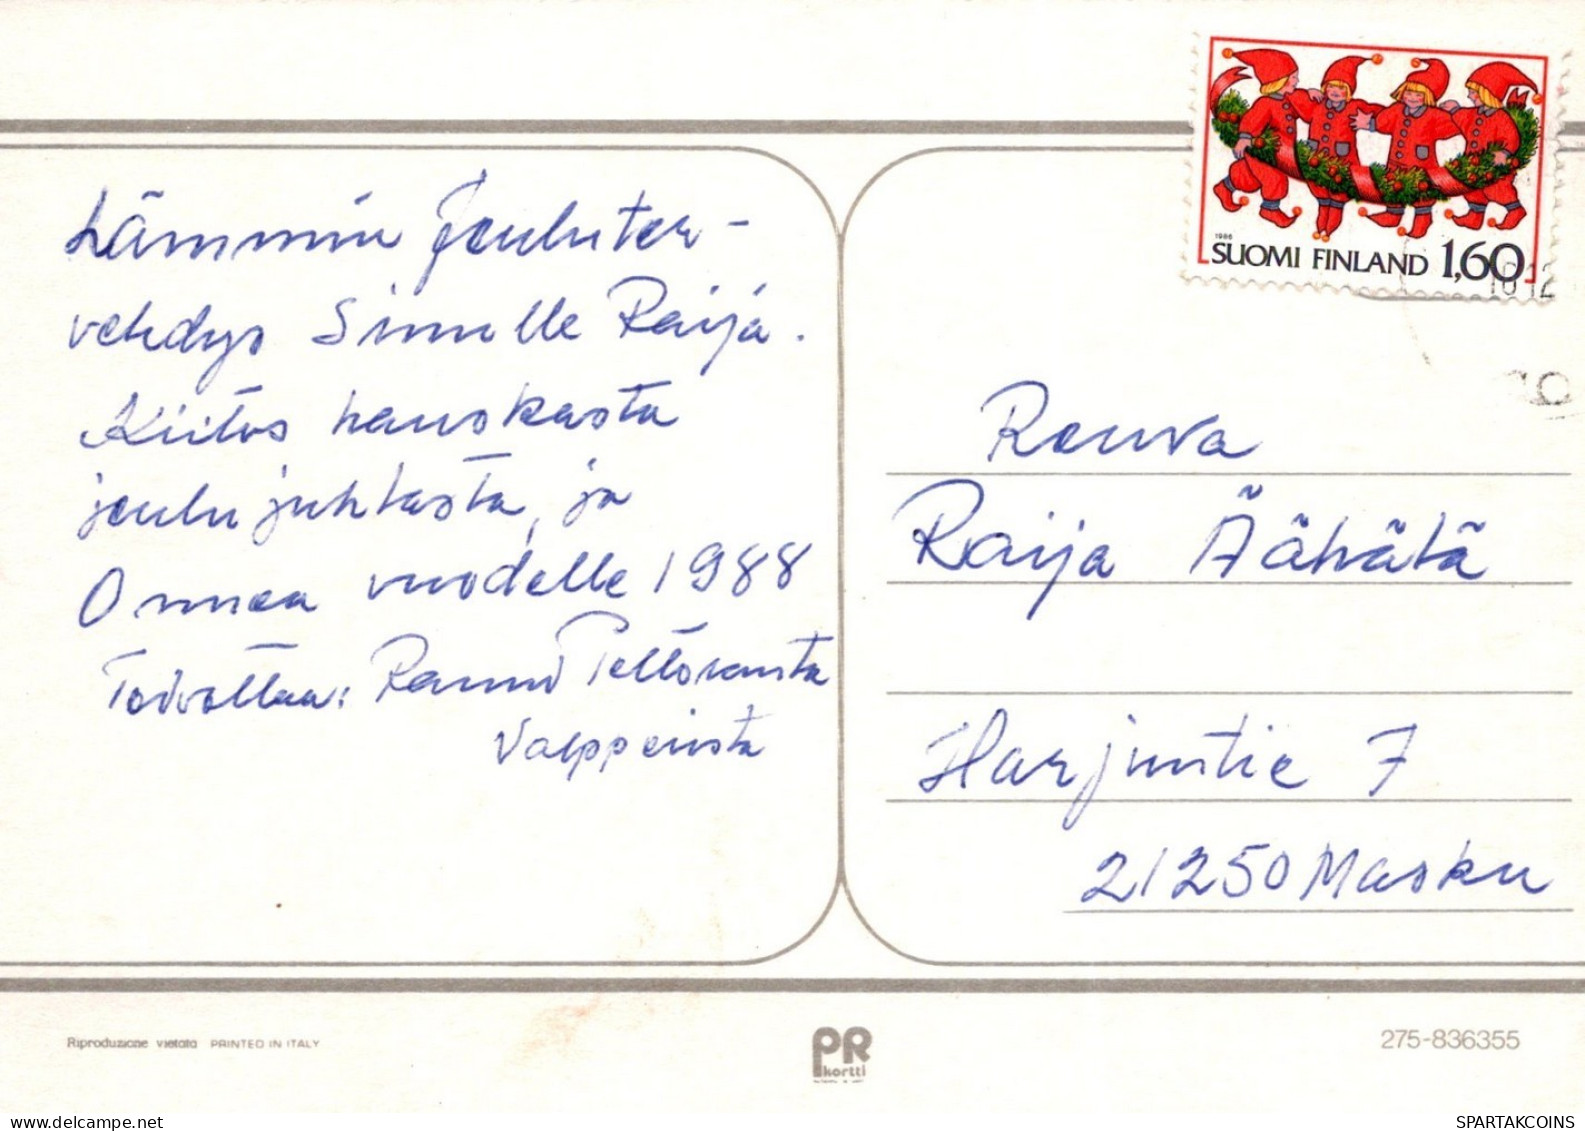 Lämmin Jouluter-
vehdys Sinulle Raija.
Kiitos hauskasta
joulujuhlasta, ja
Onnea vuodelle 1988
Toivottaa: Rauni Peltoranta
Valppeista
1986
SUOMI FINLAND 1,60
10 12
Rouva
Raija Äähälä
Harjuntie 7
21250 Masku
Riproduzione vietata PRINTED IN ITALY
PR
kortti
275-836355
SPARTAKCOINS
delcampe.net